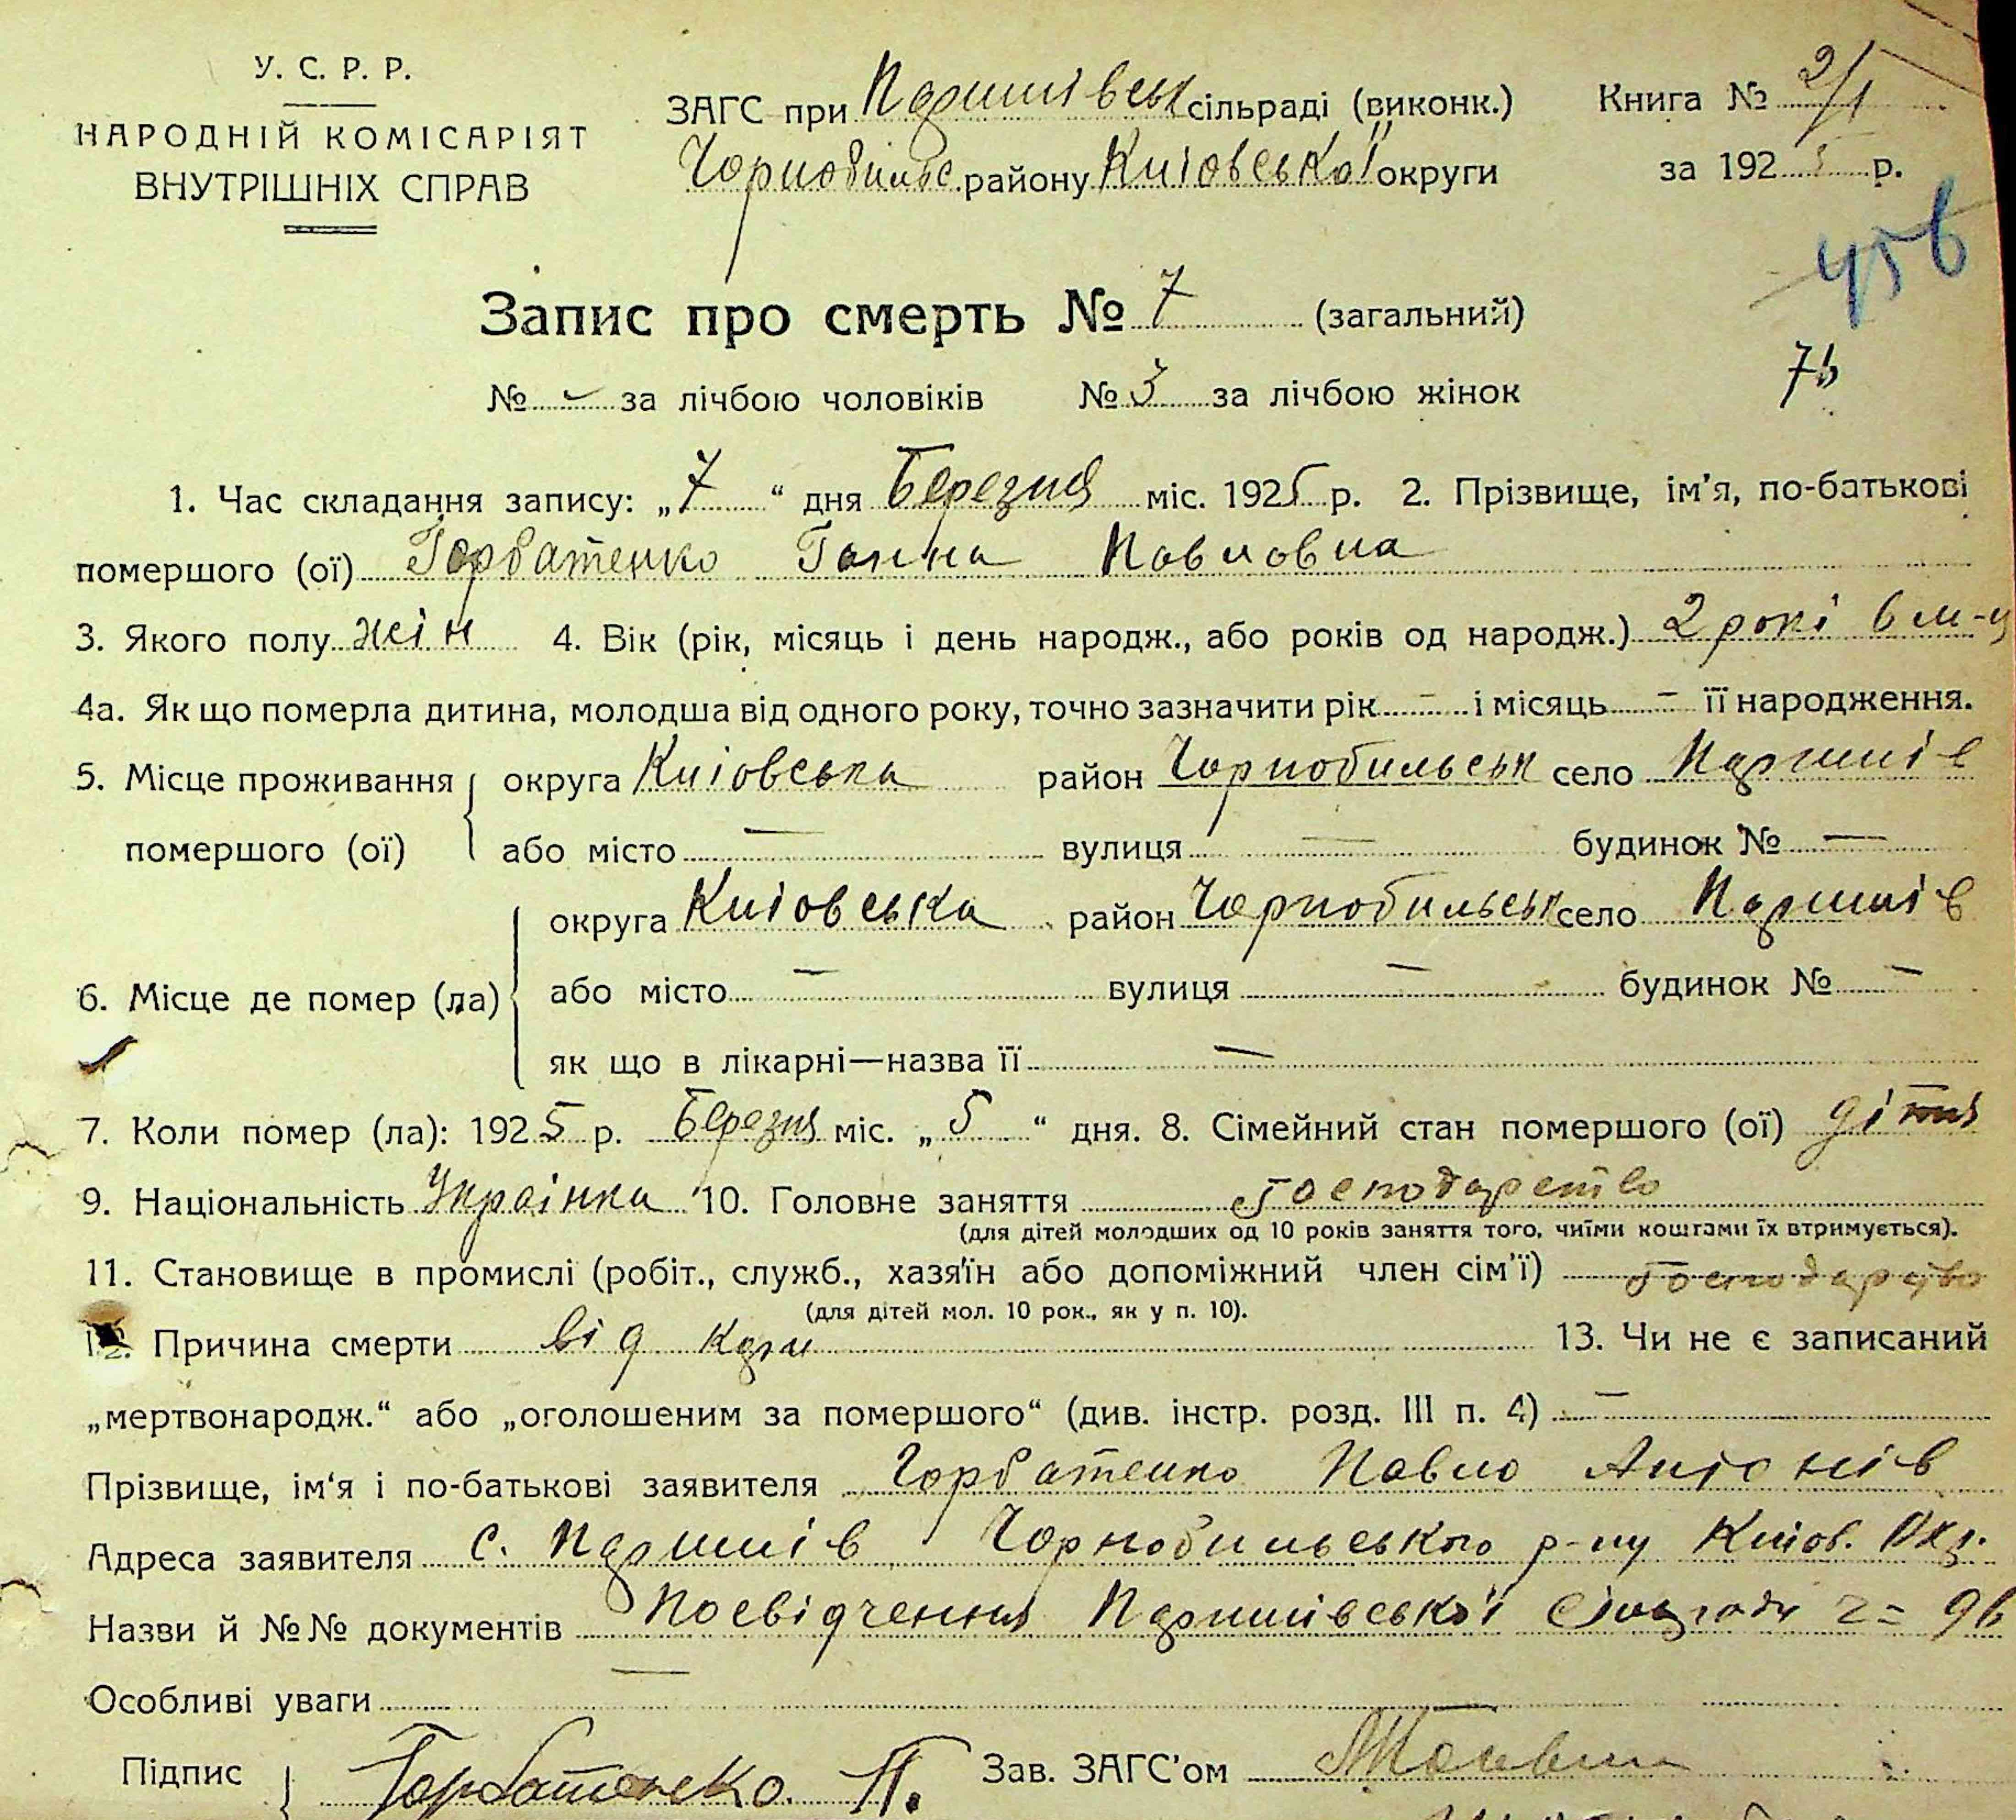 У. С. Р. Р.
НАРОДНІЙ КОМІСАРІЯТ
ВНУТРІШНІХ СПРАВ
ЗАГС при Паришівськ сільраді (виконк.)
Чорнобильс. району Київської округи
Книга № 2/1
за 192 5 р.
456
Запис про смерть № 7 (загальний)
№ за лічбою чоловіків № 3 за лічбою жінок
1. Час складання запису: „7“ дня Березня міс. 1925 р. 2. Прізвище, ім’я, по-батькові
помершого (ої) Горбатенко Ганна Павловна
3. Якого полу жін 4. Вік (рік, місяць і день народж., або років од народж.) 2 рокі 6 м-ц
4а. Як що померла дитина, молодша від одного року, точно зазначити рік — і місяць — її народження.
5. Місце проживання округа Київська район Чорнобильськ село Паришів
помершого (ої) або місто — вулиця — будинок № —
округа Київська район Чорнобильськ село Паришів
6. Місце де помер (ла) або місто — вулиця — будинок № —
як що в лікарні—назва її —
7. Коли помер (ла): 1925 р. Березня міс. „5“ дня. 8. Сімейний стан помершого (ої) дітя
9. Національність Українка 10. Головне заняття Господарство
(для дітей молодших од 10 років заняття того, чиїми коштами їх втримується).
11. Становище в промислі (робіт., служб., хазяїн або допоміжний член сім’ї) Господарство
(для дітей мол. 10 рок., як у п. 10).
12. Причина смерти від кори 13. Чи не є записаний
„мертвонародж.“ або „оголошеним за помершого“ (див. інстр. розд. III п. 4) —
Прізвище, ім‘я і по-батькові заявителя Горбатенко Павло Антонів
Адреса заявителя с. Паришів Чорнобильського р-ну Київ. Окр.
Назви й №№ документів Посвідчення Паришівської Сільради
Особливі уваги —
Підпис Горбатенко П. Зав. ЗАГС’ом